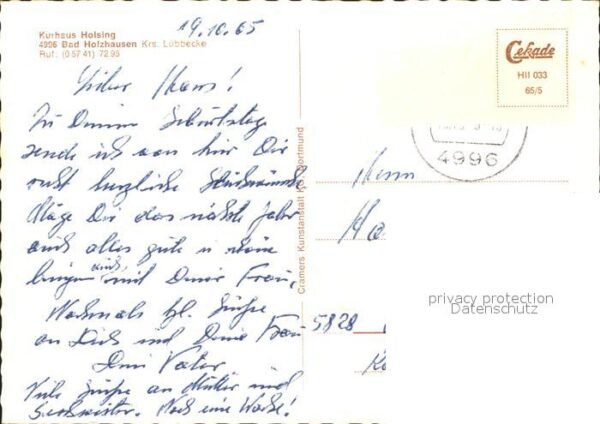 Kurhaus Holsing
4996 Bad Holzhausen Krs. Lübbecke
Ruf: (0 57 41) 72 95
19.10.65
Lieber Hans!
Zu Deinem Geburtstage
sende ich von hier Dir
recht herzliche Glückwünsche
Möge Dir das nächste Jahr
auch alles gute
auch mit Deiner Frau,
Nochmals hzl. Grüße
an Dich und Deine Frau
Dein Vater
Viele Grüße an Mutter und
Noch eine Woche!
Cramers Kunstanstalt KG, Dortmund
Cekade
HII 033
65/5
4996
Herrn
Ha
5828
K
privacy protection
Datenschutz